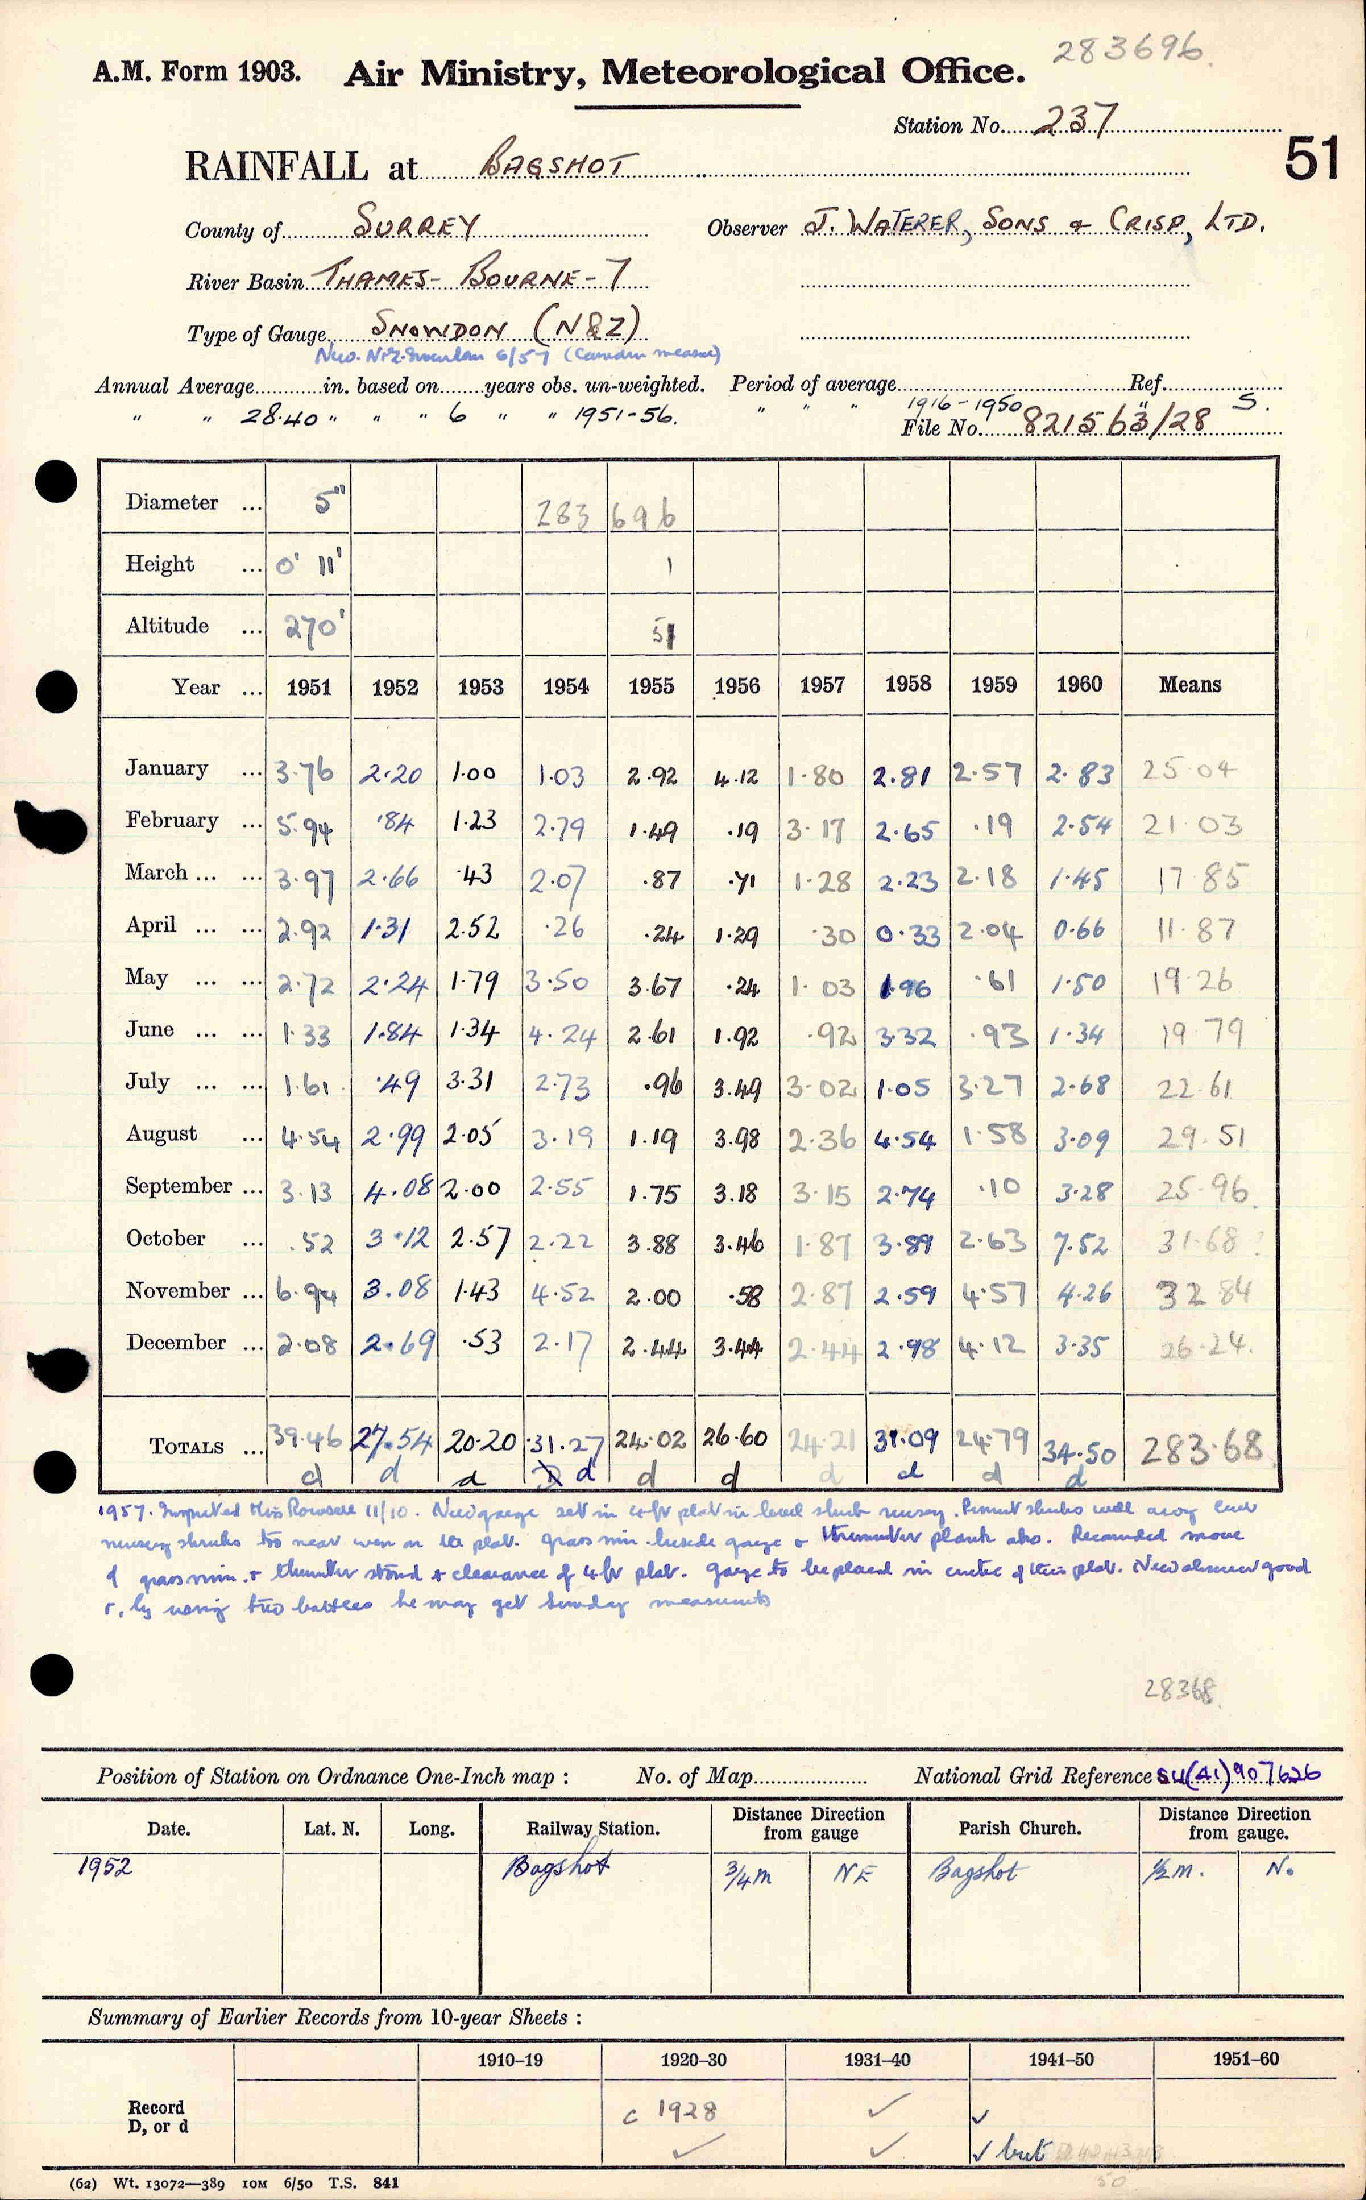 283696.
A.M. Form 1903. Air Ministry, Meteorological Office.
Station No. 237
51
RAINFALL at BAGSHOT
County of SURREY Observer J. WATERER, SONS & CRISP, LTD.
River Basin THAMES - BOURNE - 7
Type of Gauge SNOWDON (N&Z)
6/57 (Camden measure)
Annual Average in. based on years obs. un-weighted. Period of average Ref.
" " 28.40 " " " 6 " " 1951-56. " " " 1916-1950 " S.
File No. 821563/28
Diameter ... 5" 283 696
Height ... 0' 11' 1
Altitude ... 270' 51
Year ... 1951 1952 1953 1954 1955 1956 1957 1958 1959 1960 Means
January ... 3.76 2.20 1.00 1.03 2.92 4.12 1.80 2.81 2.57 2.83 25.04
February ... 5.94 .84 1.23 2.79 1.49 .19 3.17 2.65 .19 2.54 21.03
March ... ... 3.97 2.66 .43 2.07 .87 .71 1.28 2.23 2.18 1.45 17.85
April ... ... 2.92 1.31 2.52 .26 .24 1.29 .30 0.33 2.04 0.66 11.87
May ... ... 2.72 2.24 1.79 3.50 3.67 .24 1.03 1.96 .61 1.50 19.26
June ... ... 1.33 1.84 1.34 4.24 2.61 1.92 .92 3.32 .93 1.34 19.79
July ... ... 1.61 .49 3.31 2.73 .96 3.49 3.02 1.05 3.27 2.68 22.61
August ... 4.54 2.99 2.05 3.19 1.19 3.98 2.36 4.54 1.58 3.09 29.51
September ... 3.13 4.08 2.00 2.55 1.75 3.18 3.15 2.74 .10 3.28 25.96
October ... .52 3.12 2.57 2.22 3.88 3.46 1.87 3.89 2.63 7.52 31.68
November ... 6.94 3.08 1.43 4.52 2.00 .58 2.87 2.59 4.57 4.26 32.84
December ... 2.08 2.69 .53 2.17 2.44 3.44 2.44 2.98 4.12 3.35 26.24
TOTALS ... 39.46 27.54 20.20 31.27 24.02 26.60 24.21 31.09 24.79 34.50 283.68
d d d D d d d d d d d
1957. Inspected Miss Rowsell 11/10. New gauge set in 4 ft plot in level shrub nursery. Permnt shrubs well away but
nursery shrubs too near even on the plot. grass min. beside gauge & thermometer plank also. Recommended move
of grass min. & stand & clearance of 4 ft plot. Gauge to be placed in centre of this plot. New observer good
&, by using two bottles he may get Sunday measurements
28368
Position of Station on Ordnance One-Inch map : No. of Map National Grid Reference SU(41)907626
Date. Lat. N. Long. Railway Station. Distance from gauge Direction Parish Church. Distance from gauge. Direction
1952 Bagshot 3/4m NE Bagshot 1/2m. N.
Summary of Earlier Records from 10-year Sheets :
1910–19 1920–30 1931–40 1941–50 1951–60
Record D, or d
c 1928 ✓ ✓
✓ ✓ ✓ but
50
(62) Wt. 13072—389 10M 6/50 T.S. 841